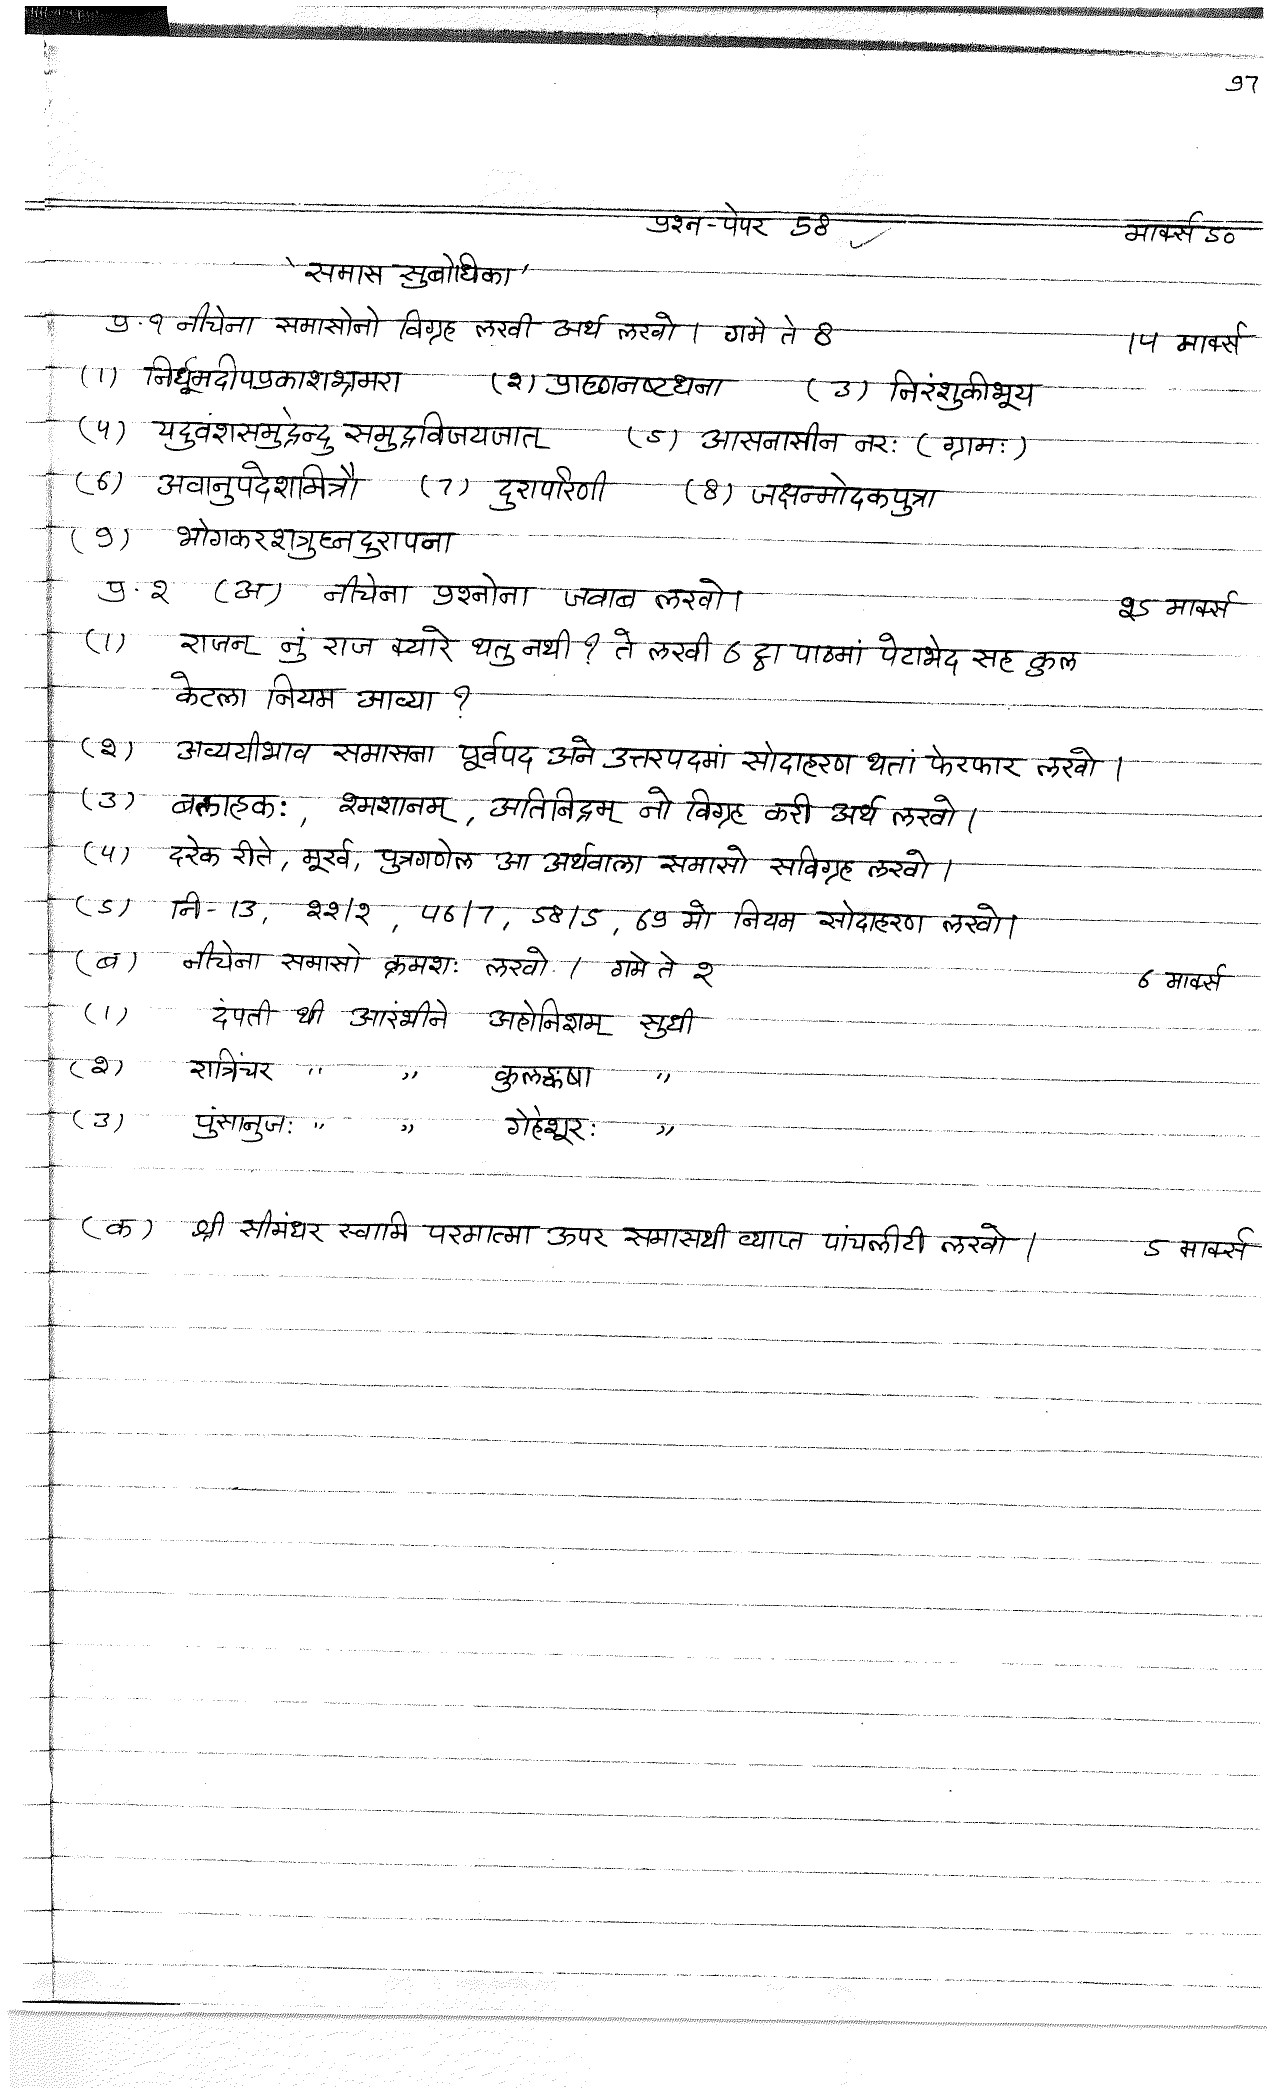 97
प्रश्न-पेपर 58 मार्क्स 50
'समास सुबोधिका'
प्र.१ नीचेना समासोनो विग्रह लखी अर्थ लखो। गमे ते 8 14 मार्क्स
(1) निर्धूमदीपप्रकाशभ्रमरा (२) प्राह्णनष्टधना (3) निरंशुकीभूय
(4) यदुवंशसमुद्रेन्दु समुद्रविजयजात् (5) आसनासीन नरः (ग्रामः)
(6) अवानुपदेशमित्रौ (7) दुरापरिणी (8) जक्षन्मोदकपुत्रा
(9) भोगकरशत्रुघ्नदुरापना
प्र.२ (अ) नीचेना प्रश्नोना जवाब लखो। २5 मार्क्स
(1) राजन् नुं राज क्यारे थतु नथी? ते लखी 6 ट्ठा पाठमां पेटाभेद सह कुल
केटला नियम आव्या?
(२) अव्ययीभाव समासना पूर्वपद अने उत्तरपदमां सोदाहरण थतां फेरफार लखो।
(3) बलाहकः, श्मशानम्, अतिनिद्रम् नो विग्रह करी अर्थ लखो।
(4) दरेक रीते, मूर्ख, पुत्रगणेल आ अर्थवाला समासो सविग्रह लखो।
(5) नि-13, २२/२, 46/7, 58/5, 69 मो नियम सोदाहरण लखो।
(ब) नीचेना समासो क्रमशः लखो। गमे ते २ 6 मार्क्स
(1) दंपती थी आरंभीने अहोनिशम् सुधी
(२) रात्रिंचर " " कुलङ्कषा "
(3) पुंसानुजः " " गेहेशूरः "
(क) श्री सीमंधर स्वामि परमात्मा ऊपर समासथी व्याप्त पांचलीटी लखो। 5 मार्क्स